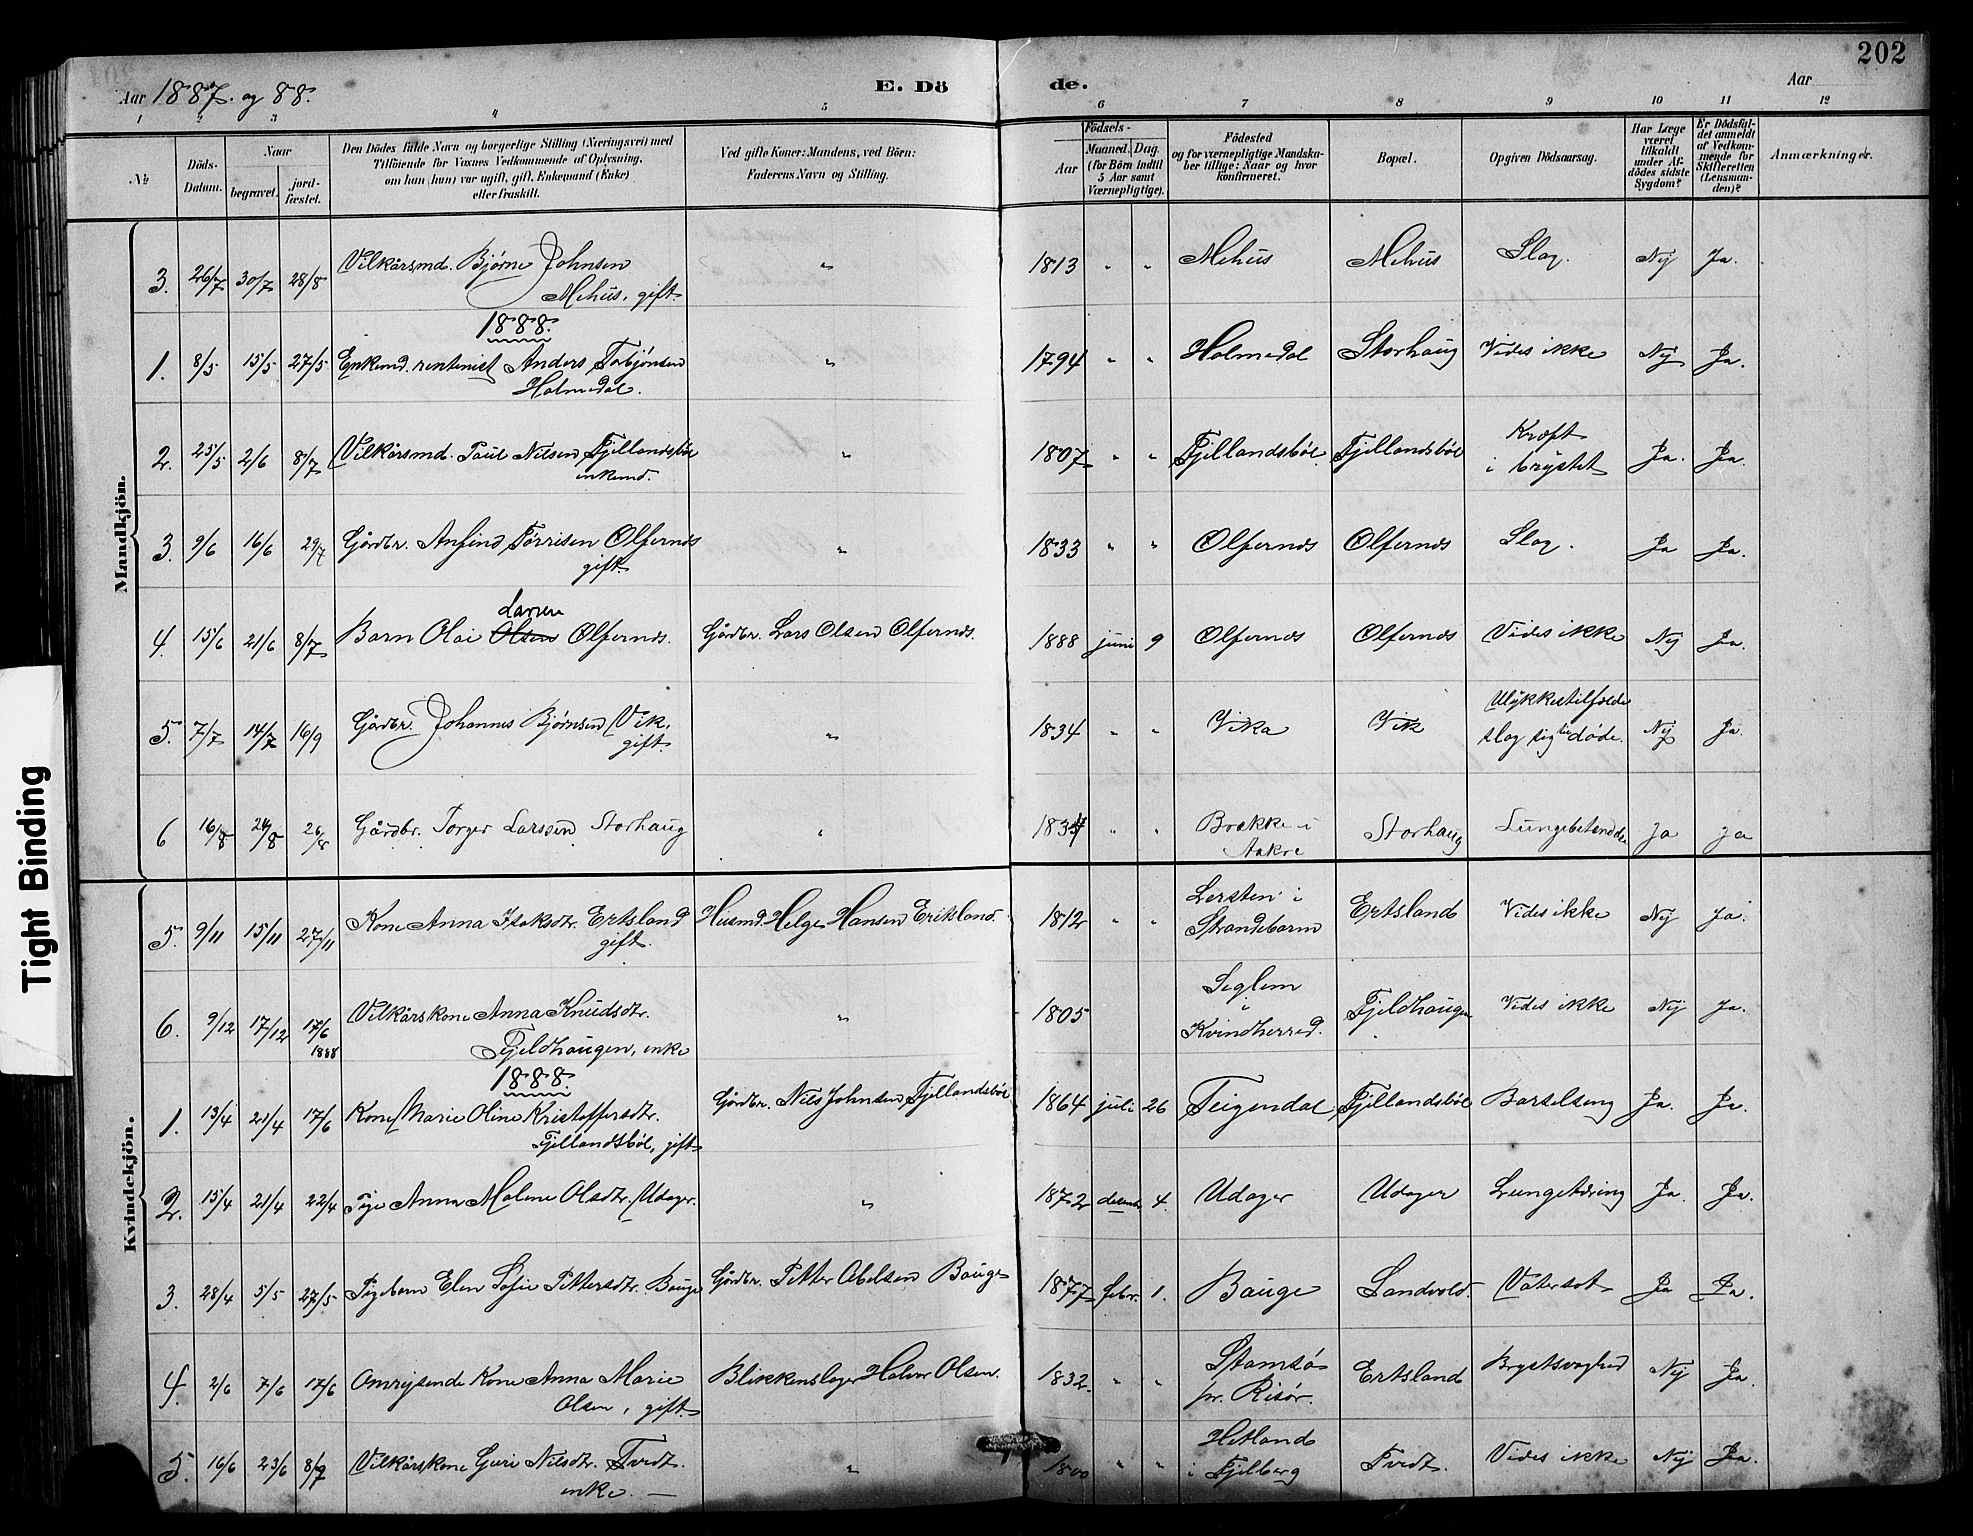 202
Aar 1887. og 88.
E. Dö
de.
Aar
1 2 3 4 5 6 7 8 9 10 11 12
№
Döds-Datum.
Naar
begravet.
jord-fæstet.
Den Dödes fulde Navn og borgerlige Stilling (Næringsvei) med
Tilföiende for Voxnes Vedkommende af Oplysning,
om han (hun) var ugift, gift, Enkemand (Enke)
eller fraskilt.
Ved gifte Koner: Mandens, ved Börn:
Faderens Navn og Stilling.
Födsels-
Aar
Maaned. Dag.
(for Börn indtil
5 Aar samt
Værnepligtige).
Födested
og for værnepligtige Mandska-
ber tillige: Naar og hvor
konfirmeret.
Bopæl.
Opgiven Dödsaarsag.
Har Læge
været
tilkaldt
under Af-
dödes sidste
Sygdom?
Er Dödsfal-
det anmeldt
af Vedkom-
mende for
Skifteretten
(Lensman-
den)?
Anmærkninger.
Mandkjön.
3. 26/7 30/7 28/8 Vilkårsmd. Bjørne Johnsen „ 1813 „ „ Mehus Mehus Slag. Nij Ja.
Mehus, gift
1888.
1. 8/5 15/5 27/5 Enkemd. rentenist Anders Torbjönsen „ 1794 „ „ Holmedal Storhaug Vides ikke Nij Ja.
Holmedal.
2. 25/5 2/6 8/7 Vilkårsmd. Paul Nilsen Fjellandsbøe „ 1807 „ „ Fjellandsbøe Fjellandsbøe Kræft
enkemd. i brystet Ja. Ja.
3. 9/6 16/6 29/7 Gårdbr. Anfind Tørrisen Ølfernæs „ 1833 „ „ Ølfernæs Ølfernæs Slag. Ja Ja.
gift
Larsen
4. 15/6 21/6 8/7 Barn Olai Olsen Ølfernæs. Gårdbr. Lars Olsen Ølfernæs. 1888 juni 9 Ølfernæs Ølfernæs Vides ikke Nij Ja.
5. 7/7 14/7 16/9 Gårdbr. Johannes Bjørnsen Vik. „ 1834 „ „ Vika Vik Ulykkestilfælde
gift slog sig til døde. Nij Ja.
6 16/8 24/8 26/8 Gårdbr. Torger Larssen Storhaug „ 1834 „ „ Brekke i Storhaug Lungebetændelse Ja ja
Aakre
Kvindekjön.
5. 9/11 15/11 27/11 Kone Anna Isaksdtr. Ertsland Husmd. Helge Hansen Eritsland. 1812 „ „ Lersten i Ertsland Vides ikke Nij ja
gift. Strandebarm
6. 9/12 17/12 17/6 1888 Vilkårskone Anna Knudsdtr. „ 1805 „ „ Seglem i Fjeldhaugen Vides ikke Nij Ja.
Fjeldhaugen, enke Kvindherred.
1888.
1. 13/4 21/4 17/6 Kone Marie Oline Kristoffersdtr. Gårdbr. Nils Johnsen Fjellandsbøe 1864 juli 26 Teigendal Fjellandsbøe Barselseng Ja. Ja.
Fjellandsbøe, gift
2. 15/4 21/4 22/4 Pige Anna Malene Olsdtr. Udager. „ 1872 decembr 4. Udager Udager Lungetæring Ja. Ja.
3. 28/4 5/5 27/5 Pigebarn Elen Sofie Pettersdtr. Bauge Gårdbr. Petter Abelsen Bauge 1877 febr. 1. Bauge Sandvold. Vatersot Ja Ja.
4. 2/6 7/6 17/6 Omreisende Kone Anna Marie Blikkenslager Halvor Olsen. 1832. „ „ Stamsø Ertsland Brystsvaghed Nij Ja.
Olsen, gift pr. Risør.
5. 16/6 23/6 8/7 Vilkårskone Guri Nilsdtr. Tvedt. „ 1800 „ „ Hetland Tvedt. Vides ikke Nij Ja.
enke. i Fjelberg
Tight Binding